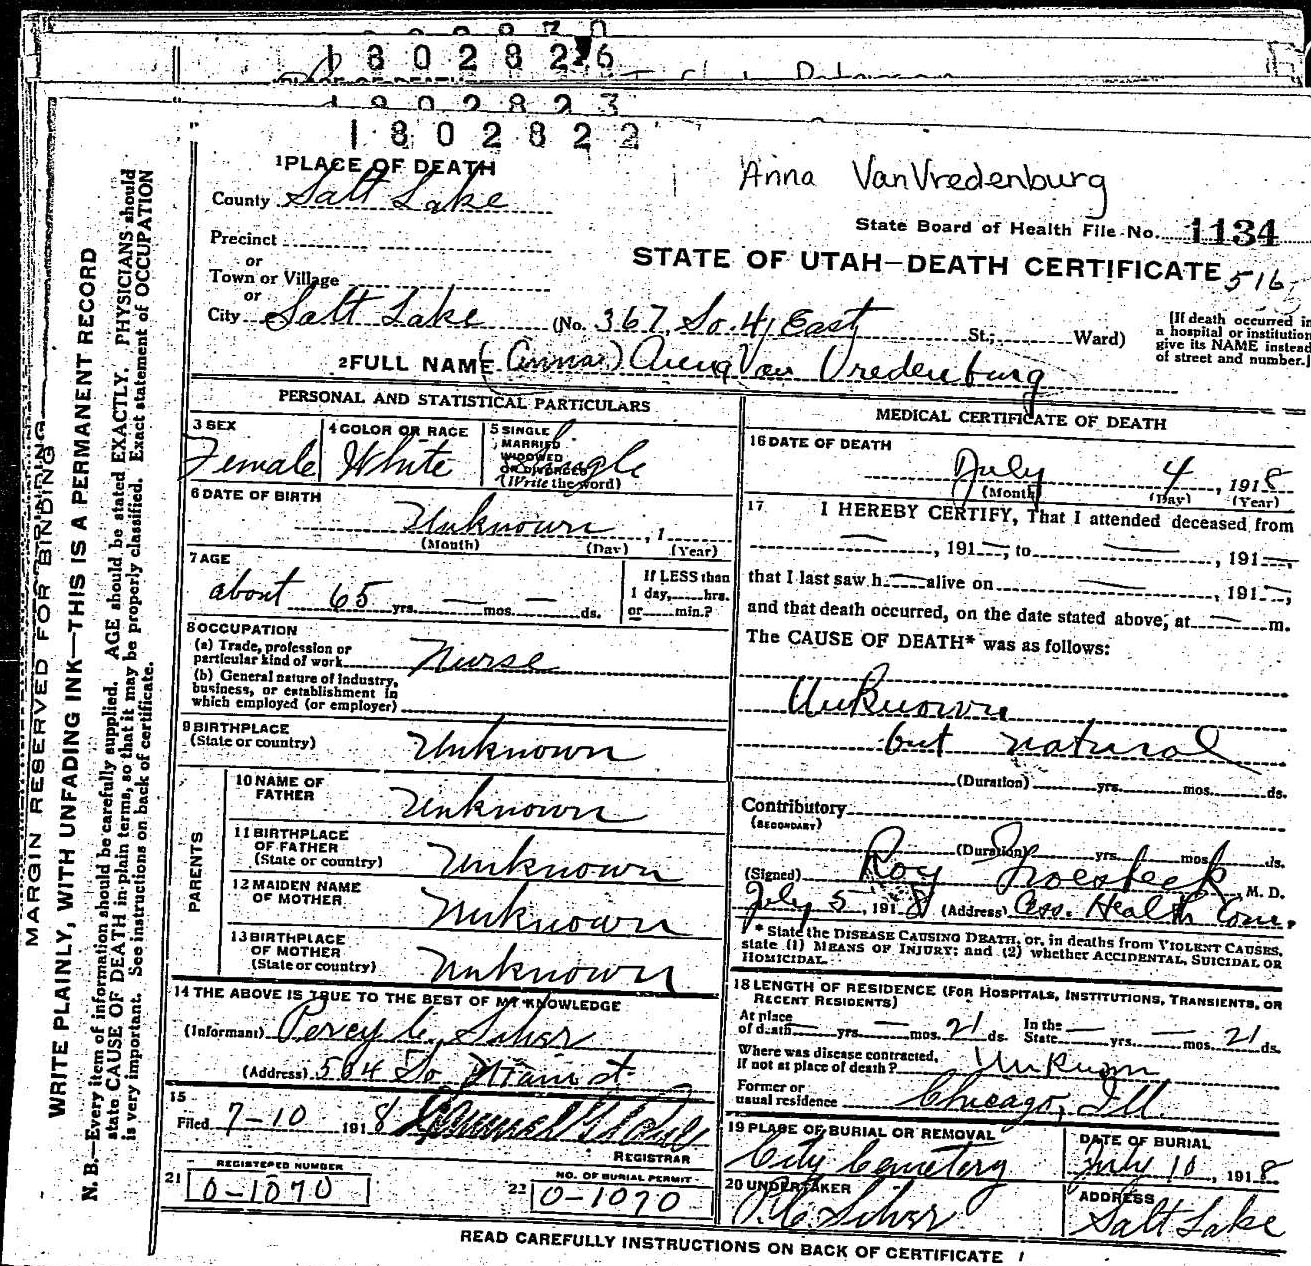 1802826
1802823
1802822
1 PLACE OF DEATH
Anna VanVredenburg
County Salt Lake
State Board of Health File No. 1134
Precinct
or
STATE OF UTAH—DEATH CERTIFICATE 516
Town or Village
or
City Salt Lake (No. 367 So. 4 East St.; Ward)
[If death occurred in
a hospital or institution
give its NAME instead
of street and number.]
2 FULL NAME (Anna) Van Vredenburg
PERSONAL AND STATISTICAL PARTICULARS
3 SEX
Female
4 COLOR OR RACE
White
5 SINGLE
MARRIED
WIDOWED
OR DIVORCED
(Write the word)
Single
6 DATE OF BIRTH
Unknown , 1
(Month) (Day) (Year)
7 AGE
about 65 yrs. — mos. — ds.
If LESS than
1 day, hrs.
or min.?
8 OCCUPATION
(a) Trade, profession or
particular kind of work Nurse
(b) General nature of industry,
business, or establishment in
which employed (or employer)
9 BIRTHPLACE
(State or country) Unknown
PARENTS
10 NAME OF
FATHER Unknown
11 BIRTHPLACE
OF FATHER
(State or country) Unknown
12 MAIDEN NAME
OF MOTHER Unknown
13 BIRTHPLACE
OF MOTHER
(State or country) Unknown
14 THE ABOVE IS TRUE TO THE BEST OF MY KNOWLEDGE
(Informant) Percy C. Silver
(Address) 504 So Main st.
15
Filed 7-10 1918
REGISTRAR
21 REGISTERED NUMBER
0-1070
22 NO. OF BURIAL PERMIT
0-1070
MEDICAL CERTIFICATE OF DEATH
16 DATE OF DEATH
July 4, 1918
(Month) (Day) (Year)
17 I HEREBY CERTIFY, That I attended deceased from
—, 191—, to —, 191—,
that I last saw h— alive on —, 191—,
and that death occurred, on the date stated above, at — m.
The CAUSE OF DEATH* was as follows:
Unknown
but natural
(Duration) yrs. mos. ds.
Contributory
(SECONDARY)
(Duration) yrs. mos. ds.
(Signed) Roy Groesbeck, M. D.
July 5, 1918 (Address) Ass. Health Com.
* State the DISEASE CAUSING DEATH, or, in deaths from VIOLENT CAUSES,
state (1) MEANS OF INJURY; and (2) whether ACCIDENTAL, SUICIDAL OR
HOMICIDAL.
18 LENGTH OF RESIDENCE (FOR HOSPITALS, INSTITUTIONS, TRANSIENTS, OR
RECENT RESIDENTS)
At place
of death yrs. — mos. 21 ds.
In the
State — yrs. — mos. 21 ds.
Where was disease contracted,
if not at place of death? Unknown
Former or
usual residence Chicago, Ill.
19 PLACE OF BURIAL OR REMOVAL
City Cemetery
DATE OF BURIAL
July 10, 1918
20 UNDERTAKER
P.C. Silver
ADDRESS
Salt Lake
READ CAREFULLY INSTRUCTIONS ON BACK OF CERTIFICATE
MARGIN RESERVED FOR BINDING
WRITE PLAINLY, WITH UNFADING INK—THIS IS A PERMANENT RECORD
N. B.—Every item of information should be carefully supplied. AGE should be stated EXACTLY. PHYSICIANS should
state CAUSE OF DEATH in plain terms, so that it may be properly classified. Exact statement of OCCUPATION
is very important. See instructions on back of certificate.